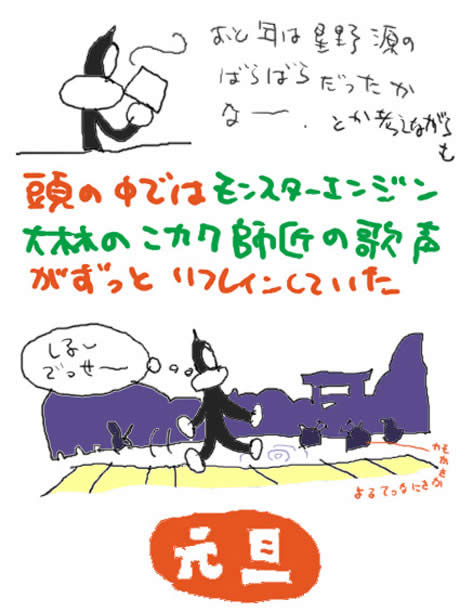 おと年は星野源の
ばらばらだったか
なー. とか考えながら
も
頭の中ではモンスターエンジン
大林のニカク師匠の歌声
がずっとリフレインしていた
でっせ〜
元旦